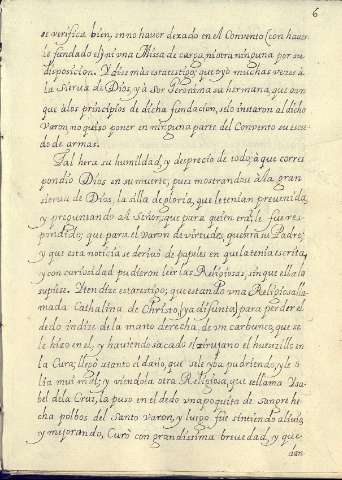 6
se verifica bien, en no haver dexado en el Convento (con haver
le fundado el) ni una Missa de carga, ni otra ninguna por su
disposicion. Y dize mas esta testigo; que oyò muchas vezes à
la Sierva de Dios, y à Sor Geronima su hermana, que aun
que à los principios de dicha fundacion, se lo instaron al dicho
Varon, no quiso poner en ninguna parte del Convento su escu
do de armas.
Tal hera su humildad, y desprecio de todo; à que corres
pondiò Dios en su muerte, pues mostrandose à la gran
sierva de Dios, la silla de gloria, que le tenian prevenida,
y preguntando al Señor, que para quien era? le fue res
pondido; que para el Varon de virtudes, que era su Padre;
y que esta noticia se derivò de papeles en que la tenia escrita,
y con curiosidad pudieron leer las Religiosas, sin que ella lo
supiese. Iten dize esta testigo; que estando una Religiosa lla
mada Cathalina de Christo, (ya difunta) para perder el
dedo indize de la mano derecha, de un carbunco, que se
le hizo en el, y haviendo sacado el zirujano el huezillo en
la Cura; llegò à tanto el daño, que se le yba pudriendo, y le o
lia mui mal; y viendola otra Religiosa, que se llama Ysa
bel de la Cruz, la puso en el dedo una poquita de Sangre he
cha polbos del Santo Varon, y luego fue sintiendo alivio,
y mejorando, Curò con grandissima brevedad, y que-
dan